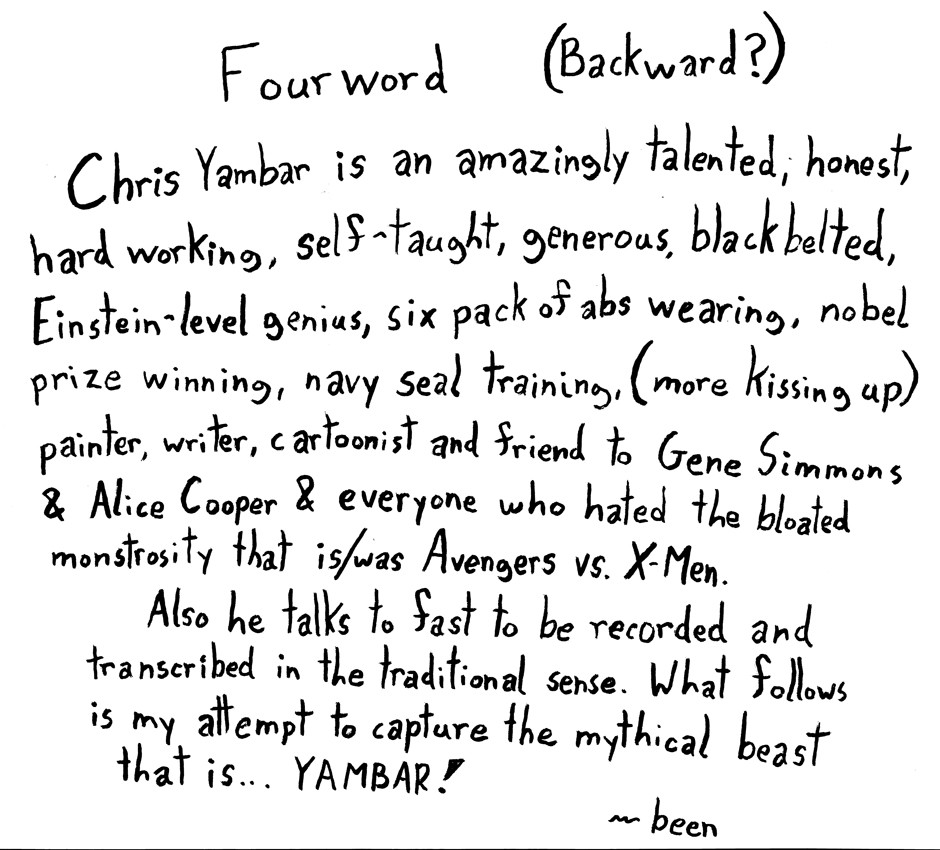 Fourword (Backward?)
Chris Yambar is an amazingly talented, honest,
hard working, self-taught, generous, black belted,
Einstein-level genius, six pack of abs wearing, nobel
prize winning, navy seal training, (more kissing up)
painter, writer, cartoonist and friend to Gene Simmons
& Alice Cooper & everyone who hated the bloated
monstrosity that is/was Avengers vs. X-Men.
Also he talks to fast to be recorded and
transcribed in the traditional sense. What follows
is my attempt to capture the mythical beast
that is... YAMBAR!
~ been